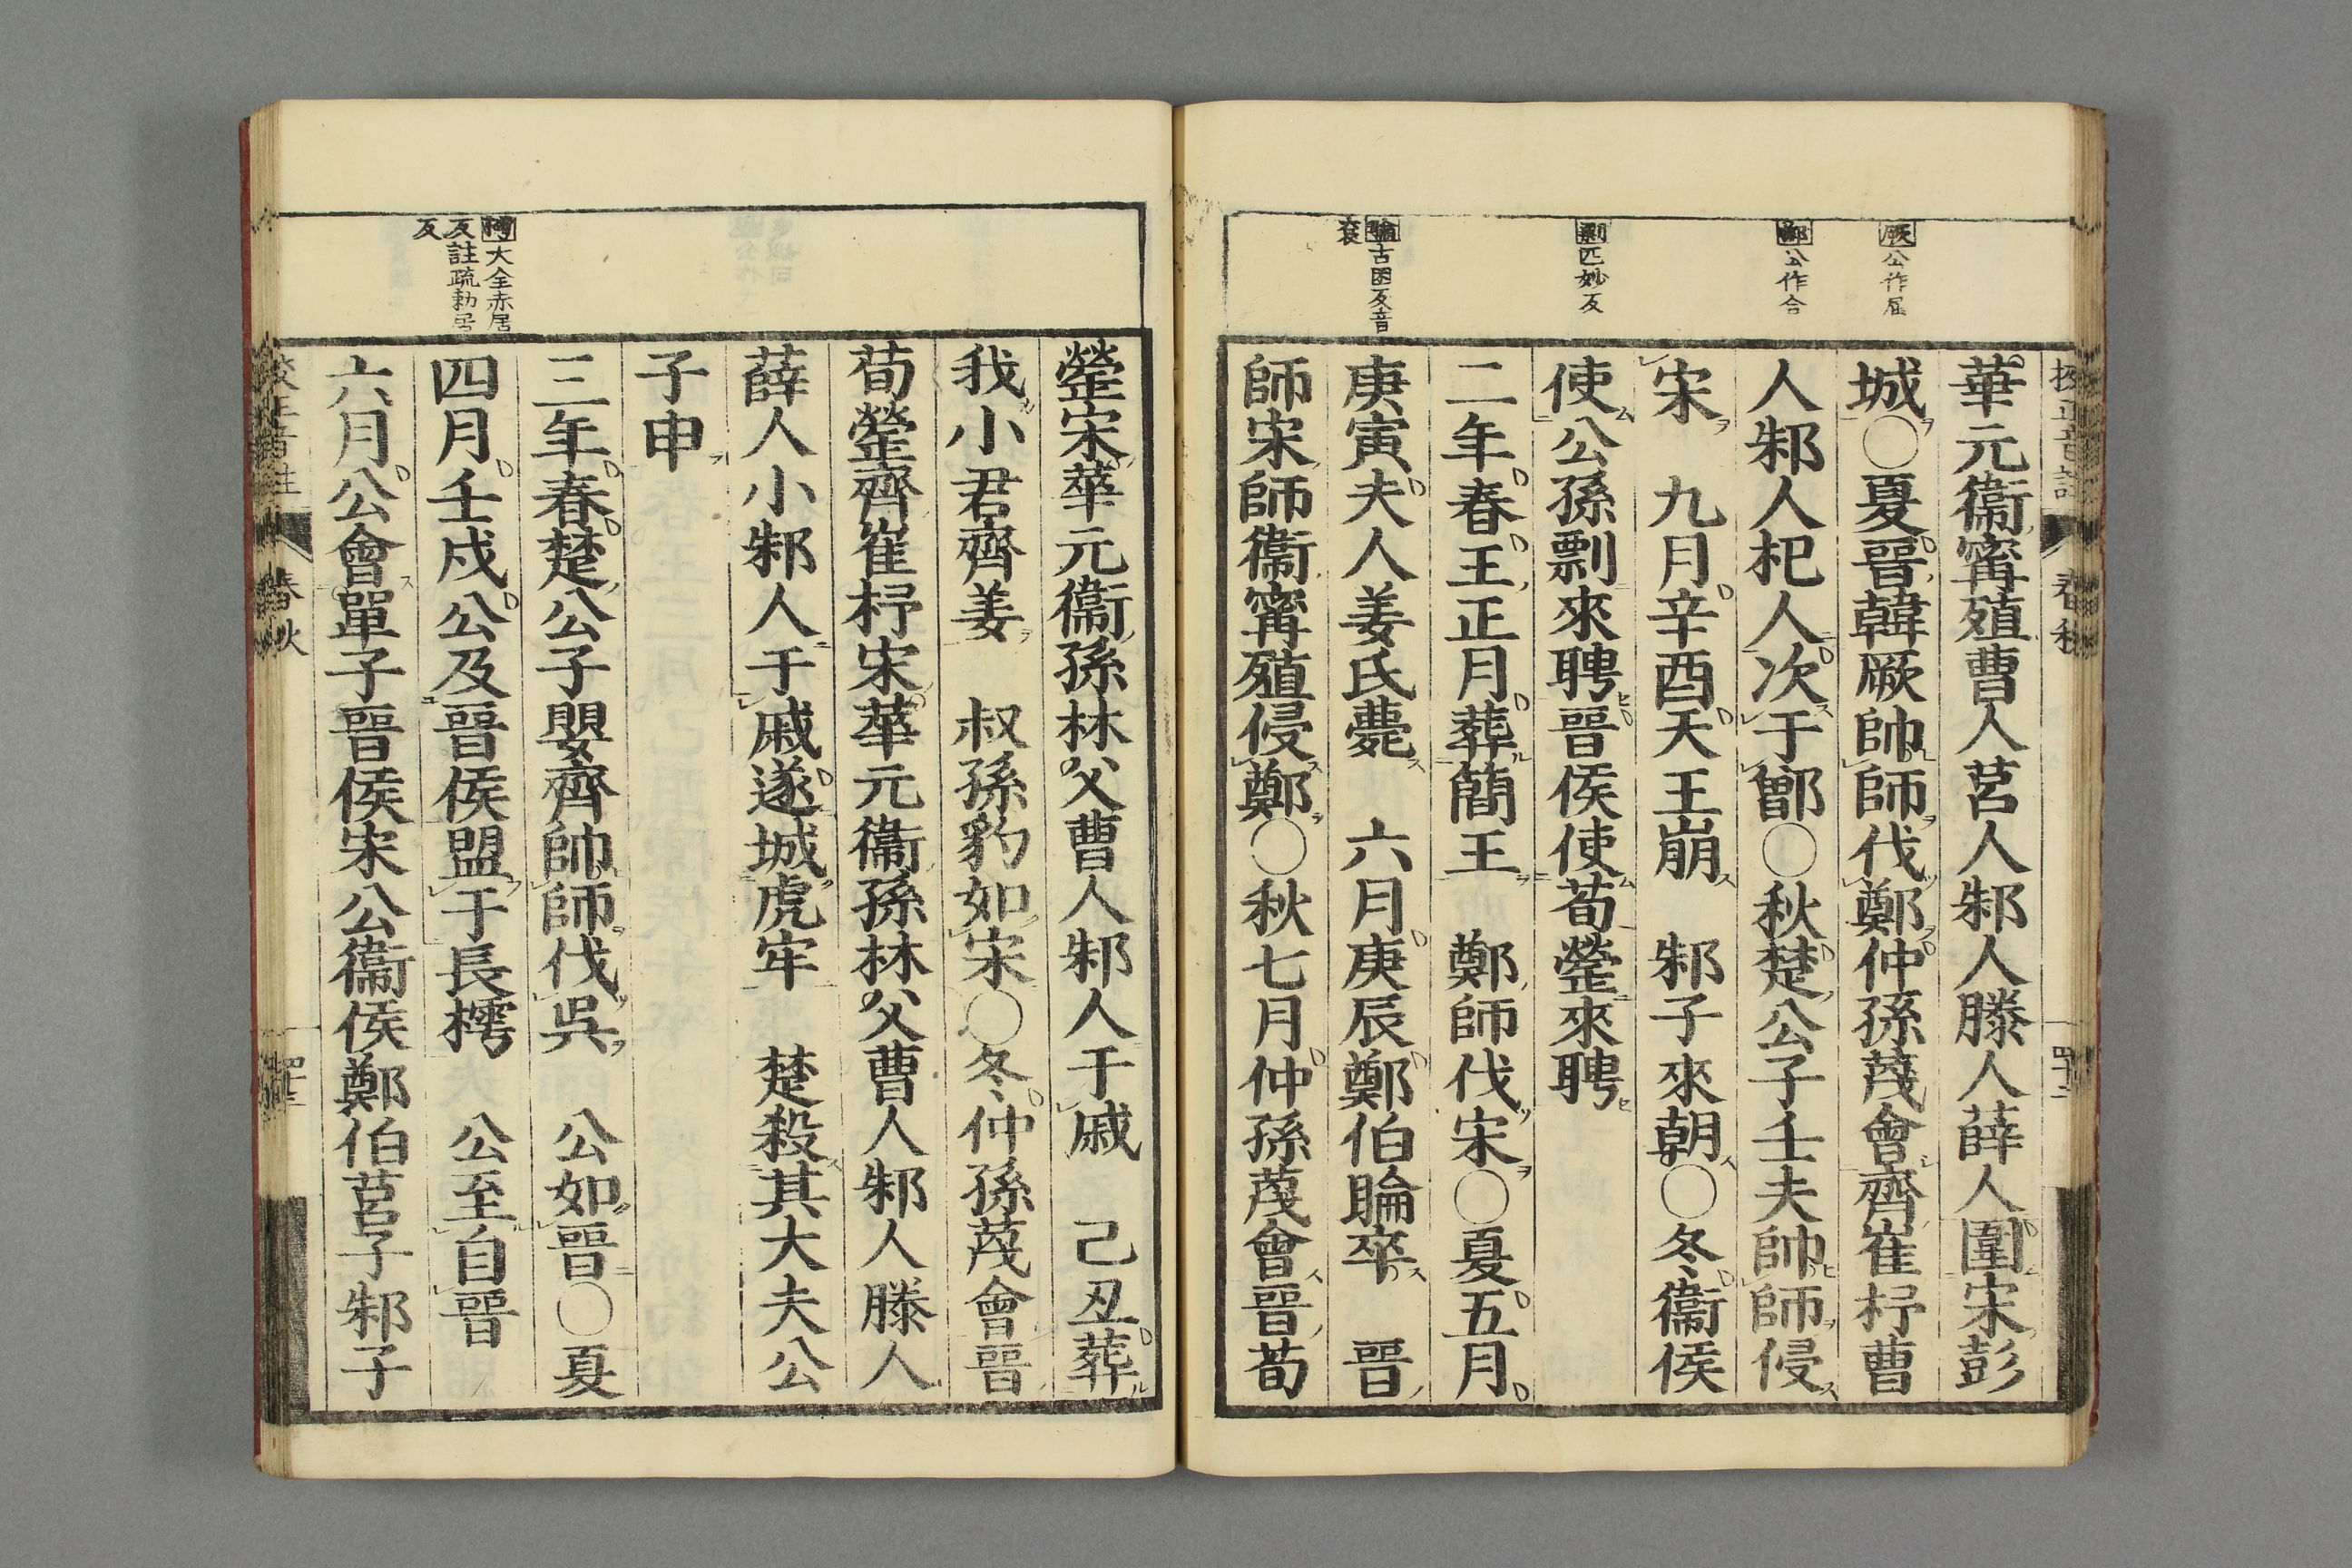 厥公作屈
鄫公作合
剽匹妙反
睔古困反音
袞
華元衞甯殖曹人莒人邾人滕人薛人圍宋彭
城○夏晉韓厥帥師伐鄭仲孫蔑會齊崔杼曹
人邾人杞人次于鄫○秋楚公子壬夫帥師侵
宋　九月辛酉天王崩　邾子來朝○冬衞侯
使公孫剽來聘晉侯使荀罃來聘
二年春王正月葬簡王　鄭師伐宋○夏五月
庚寅夫人姜氏薨　六月庚辰鄭伯睔卒　晉
師宋師衞甯殖侵鄭○秋七月仲孫蔑會晉荀
春秋
樗大全赤居
反註疏勑居
反
罃宋華元衞孫林父曹人邾人于戚　己丑葬
我小君齊姜　叔孫豹如宋○冬仲孫蔑會晉
荀罃齊崔杼宋華元衞孫林父曹人邾人滕人
薛人小邾人于戚遂城虎牢　楚殺其大夫公
子申
三年春楚公子嬰齊帥師伐吳　公如晉○夏
四月壬戌公及晉侯盟于長樗　公至自晉
六月公會單子晉侯宋公衞侯鄭伯莒子邾子
春秋